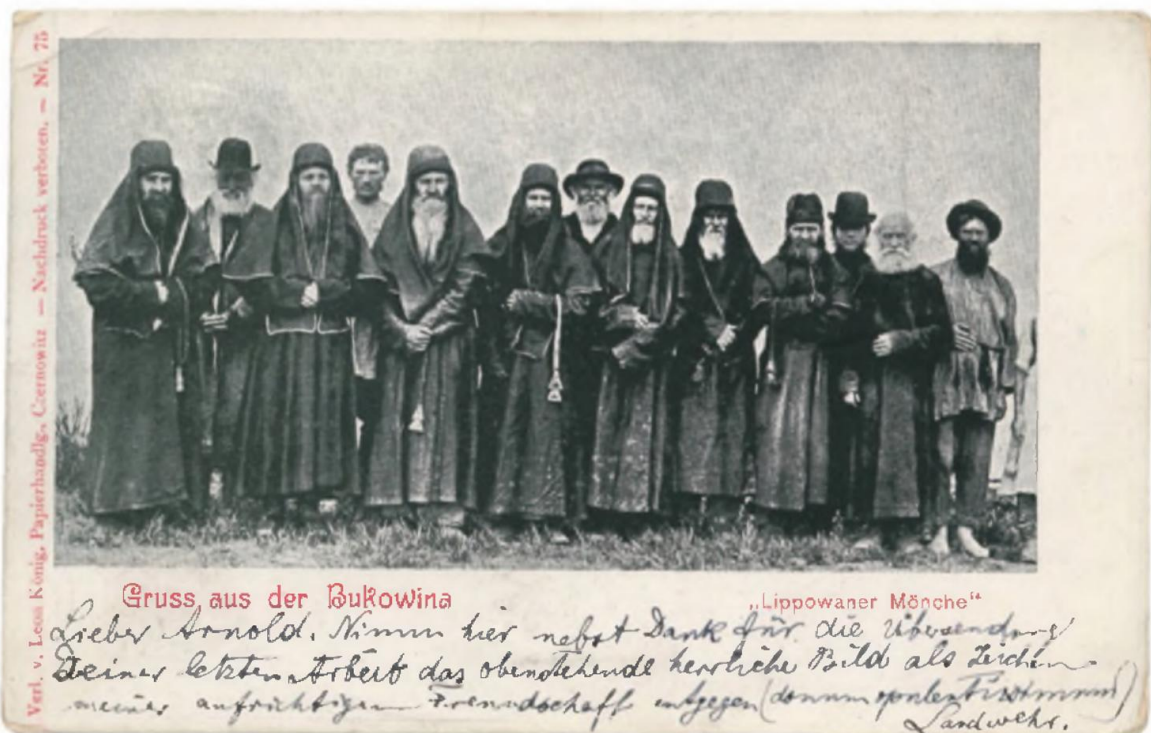 Verl. v. Leon König, Papierhandlg., Czernowitz — Nachdruck verboten. — Nr. 75
Gruss aus der Bukowina
„Lippowaner Mönche“
Lieber Arnold. Nimm hier nebst Dank für die Übersendung
Deiner letzten Arbeit das obenstehende herrliche Bild als Zeichen
meiner aufrichtigen Freundschaft entgegen (donum opulentissimum)
Landwehr.